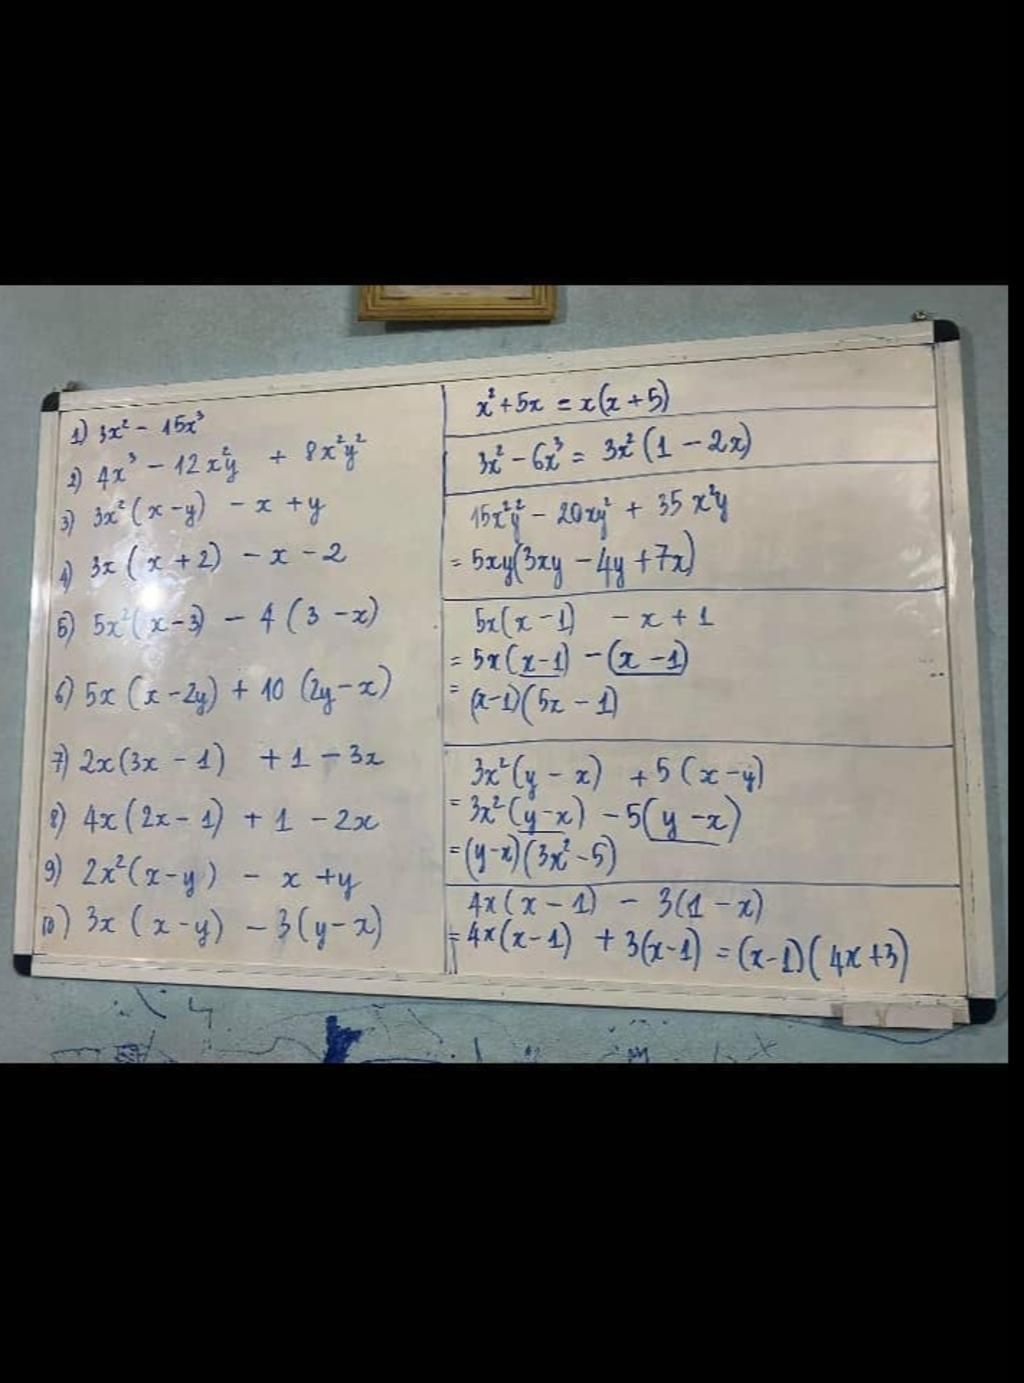 1) 3x² - 15x³
2) 4x³ - 12x²y + 8x²y²
3) 3x²(x-y) - x + y
4) 3x(x + 2) - x - 2
5) 5x²(x-3) - 4(3-x)
6) 5x(x-2y) + 10(2y-x)
7) 2x(3x - 1) + 1 - 3x
8) 4x(2x-1) + 1 - 2x
9) 2x²(x-y) - x + y
10) 3x(x-y) - 3(y-x)
x² + 5x = x(x + 5)
3x² - 6x³ = 3x²(1 - 2x)
15x²y² - 20xy² + 35x²y
= 5xy(3xy - 4y + 7x)
5x(x-1) - x + 1
= 5x(x-1) - (x-1)
= (x-1)(5x - 1)
3x²(y - x) + 5(x-y)
= 3x²(y-x) - 5(y-x)
= (y-x)(3x² - 5)
4x(x-1) - 3(1-x)
= 4x(x-1) + 3(x-1) = (x-1)(4x+3)